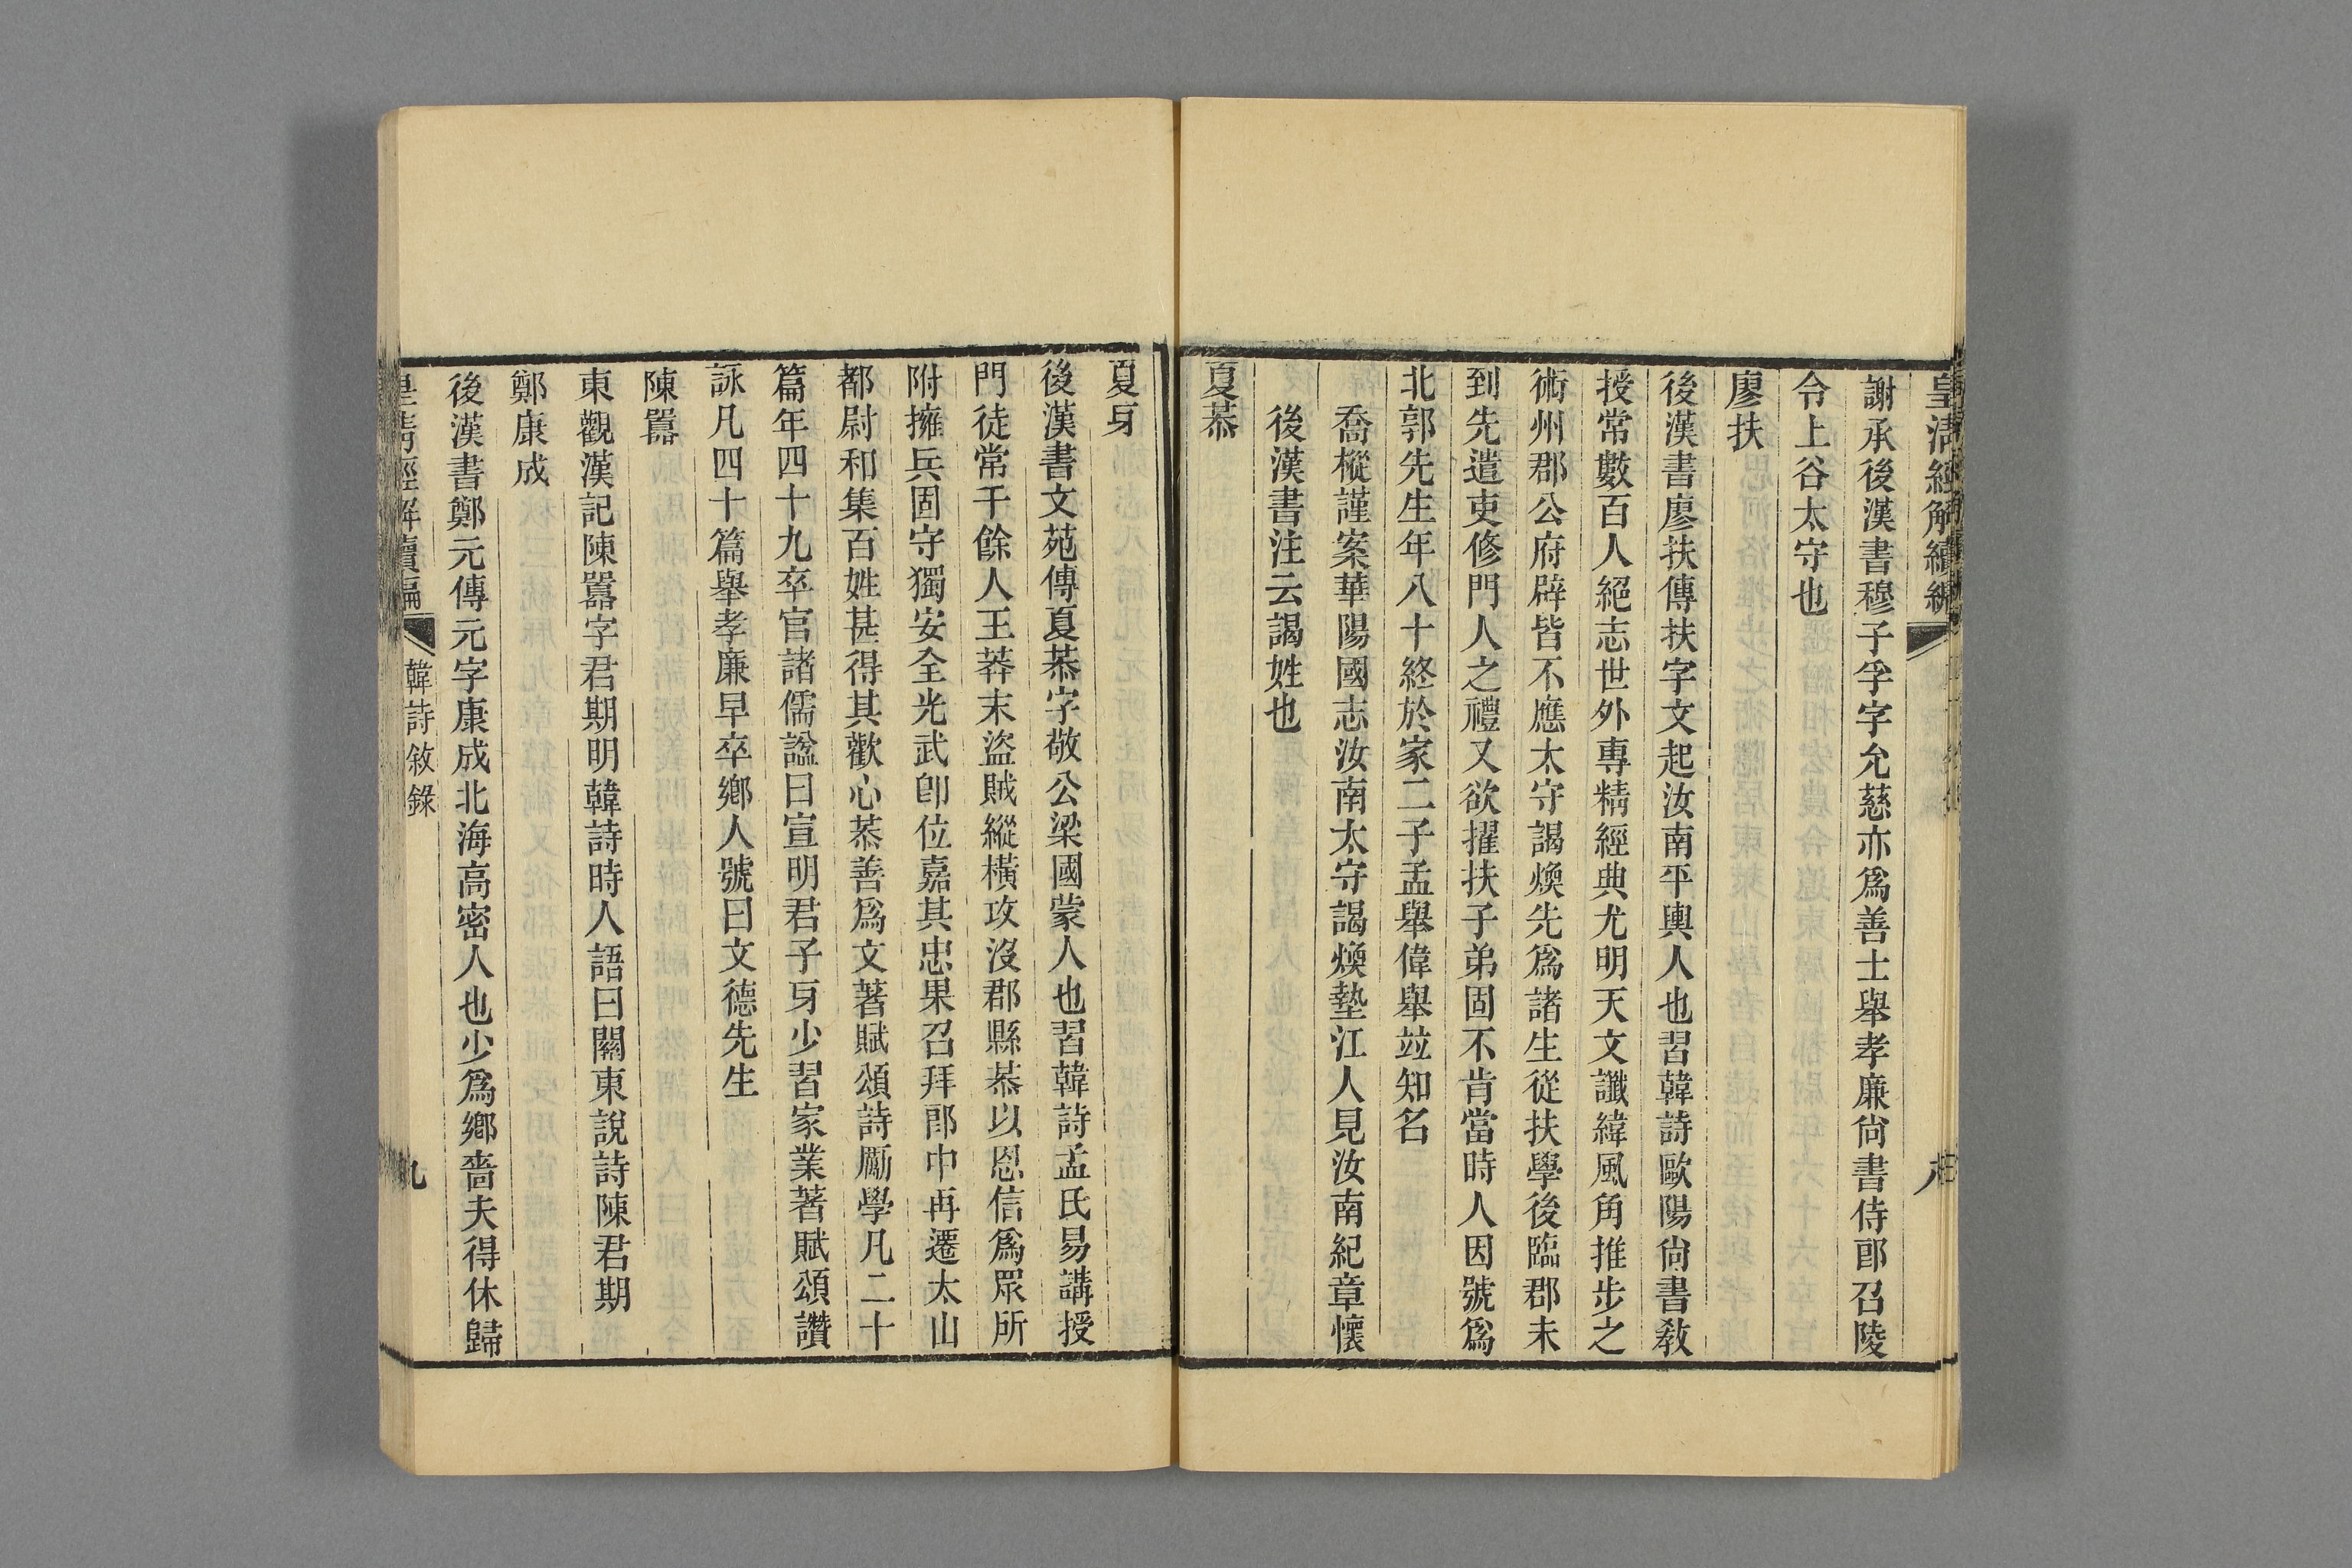 皇清經解續編
謝承後漢書穆子孚字允慈亦爲善士舉孝廉尙書侍郎召陵
令上谷太守也
廖扶
後漢書廖扶傳扶字文起汝南平輿人也習韓詩歐陽尙書敎
授常數百人絕志世外專精經典尤明天文讖緯風角推步之
術州郡公府辟皆不應太守謁煥先爲諸生從扶學後臨郡未
到先遣吏修門人之禮又欲擢扶子弟固不肯當時人因號爲
北郭先生年八十終於家二子孟舉偉舉竝知名
喬樅謹案華陽國志汝南太守謁煥墊江人見汝南紀章懷
後漢書注云謁姓也
夏恭
夏牙
後漢書文苑傳夏恭字敬公梁國蒙人也習韓詩孟氏易講授
門徒常千餘人王莽末盜賊縱橫攻沒郡縣恭以恩信爲眾所
附擁兵固守獨安全光武卽位嘉其忠果召拜郎中再遷太山
都尉和集百姓甚得其歡心恭善爲文著賦頌詩勵學凡二十
篇年四十九卒官諸儒諡曰宣明君子牙少習家業著賦頌讚
詠凡四十篇舉孝廉早卒鄉人號曰文德先生
陳囂
東觀漢記陳囂字君期明韓詩時人語曰關東說詩陳君期
鄭康成
後漢書鄭元傳元字康成北海高密人也少爲鄉嗇夫得休歸
皇清經解續編
韓詩敘錄
九